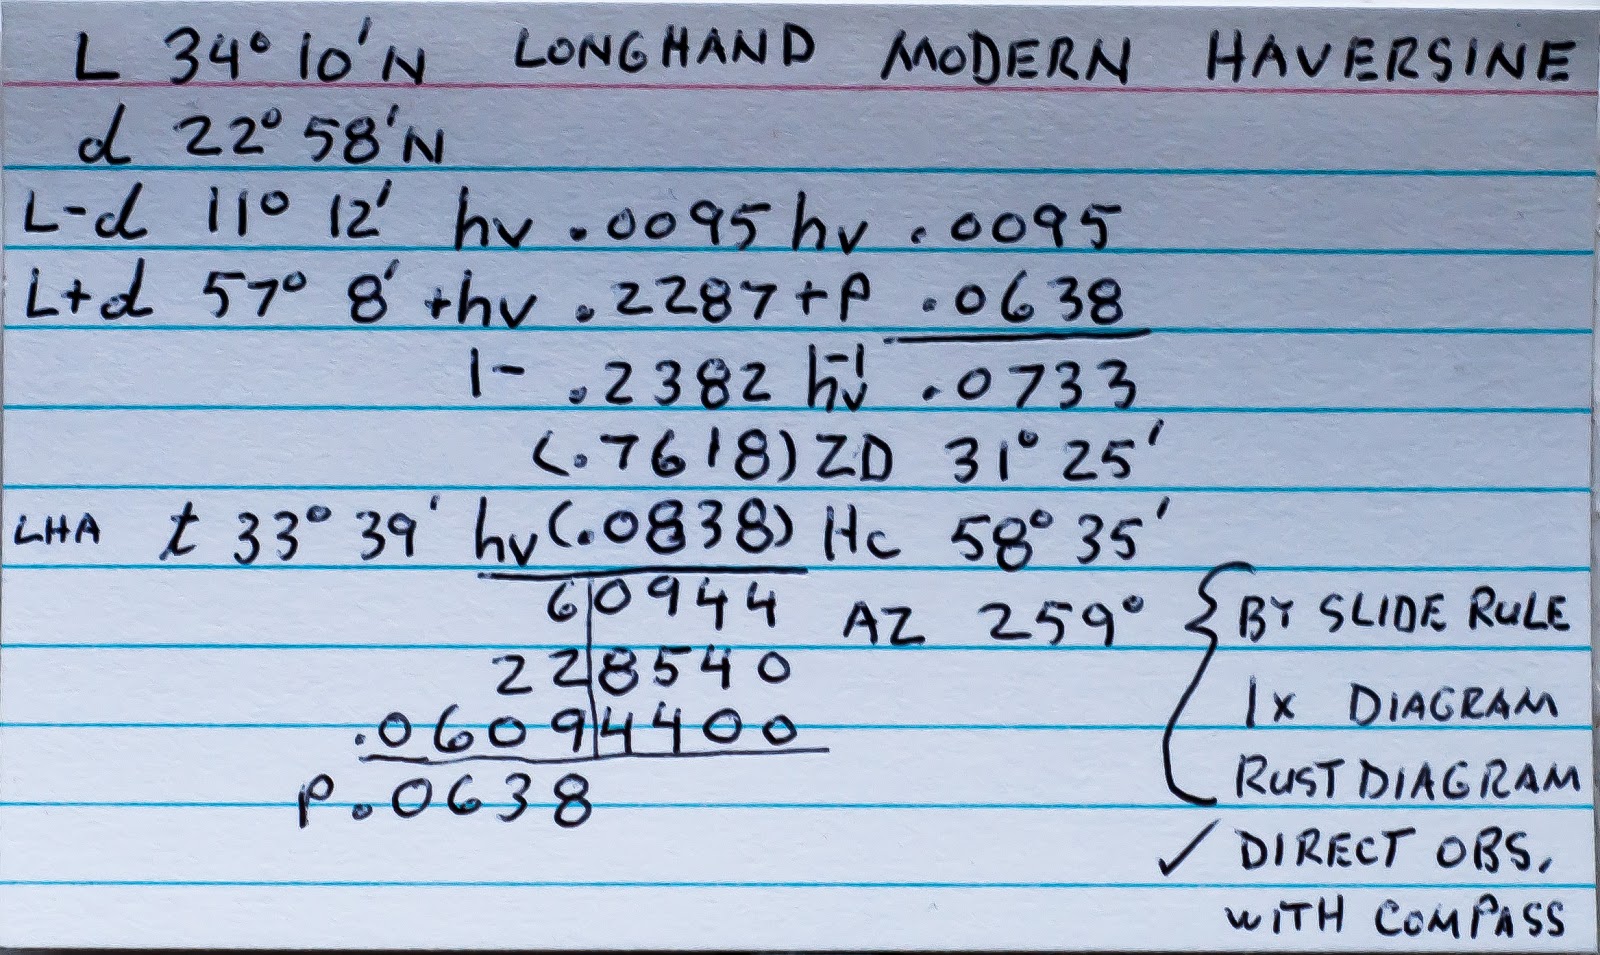 L 34° 10' N LONGHAND MODERN HAVERSINE
d 22° 58' N
L-d 11° 12' hv .0095 hv .0095
L+d 57° 8' +hv .2287 +P .0638
1- .2382 hv⁻¹ .0733
(.7618) ZD 31° 25'
LHA t 33° 39' hv (.0838) Hc 58° 35'
6|0944 AZ 259° { BY SLIDE RULE
22|8540 1x DIAGRAM
.0609|4400 RUST DIAGRAM
P .0638
✓ DIRECT OBS.
WITH COMPASS